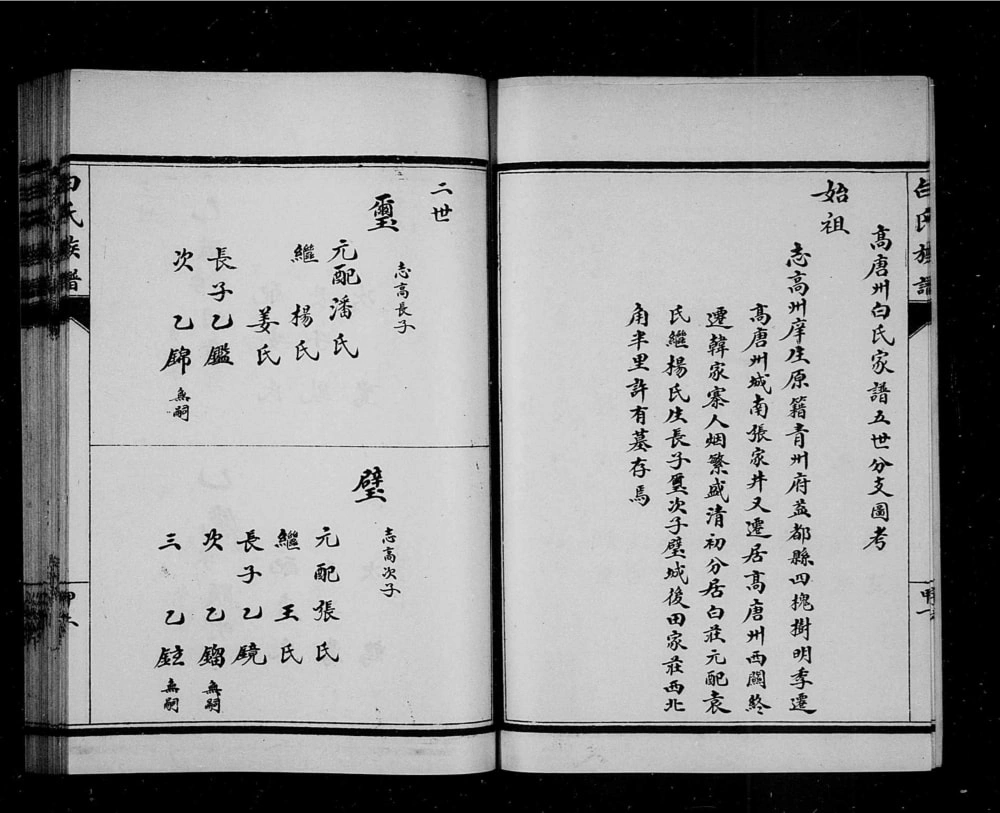 白氏族譜
高唐州白氏家譜五世分支圖考
始祖
志高州庠生原籍青州府益都縣四槐樹明季遷
高唐州城南張家井又遷居高唐州西關終
遷韓家寨人烟繁盛清初分居白莊元配袁
氏繼楊氏生長子璽次子璧城後田家莊西北
角半里許有墓存焉
二世
璽
志高長子
元配潘氏
繼楊氏
姜氏
長子乙鑑
次乙錦無嗣
璧
志高次子
元配張氏
繼王氏
長子乙鏡
次乙鎦無嗣
三乙鉉無嗣
白氏族譜